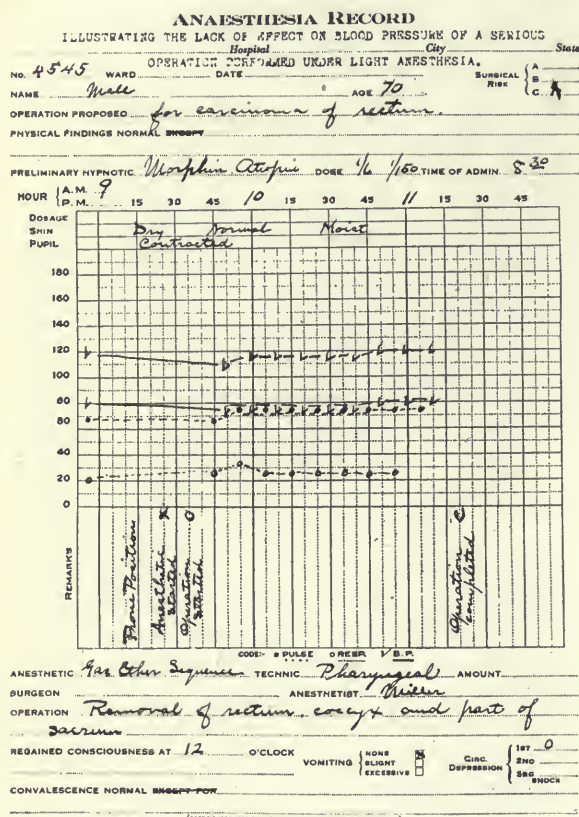 ANAESTHESIA RECORD
ILLUSTRATING THE LACK OF EFFECT ON BLOOD PRESSURE OF A SERIOUS
Hospital City State
OPERATION PERFORMED UNDER LIGHT ANESTHESIA.
No. 4545 WARD DATE SURGICAL RISK A B C
NAME Male AGE 70
OPERATION PROPOSED for carcinoma of rectum.
PHYSICAL FINDINGS NORMAL EXCEPT
PRELIMINARY HYPNOTIC Morphin Atropin DOSE 1/6 1/150 TIME OF ADMIN. 8 30
HOUR A.M. 9 15 30 45 10 15 30 45 11 15 30 45
P.M.
DOSAGE
SKIN Dry Normal Moist
PUPIL Contracted
180
160
140
120
100
80
60
40
20
0
REMARKS
Prone Position
Anesthetic started
Operation started
Operation completed
CODE:- PULSE O RESP. B.P.
ANESTHETIC Gas Ether Sequence TECHNIC Pharyngeal AMOUNT
SURGEON ANESTHETIST Miller
OPERATION Removal of rectum, coccyx and part of
sacrum
REGAINED CONSCIOUSNESS AT 12 O'CLOCK VOMITING NONE SLIGHT EXCESSIVE CIRC. DEPRESSION 1ST 0 2ND 3RD SHOCK
CONVALESCENCE NORMAL EXCEPT FOR